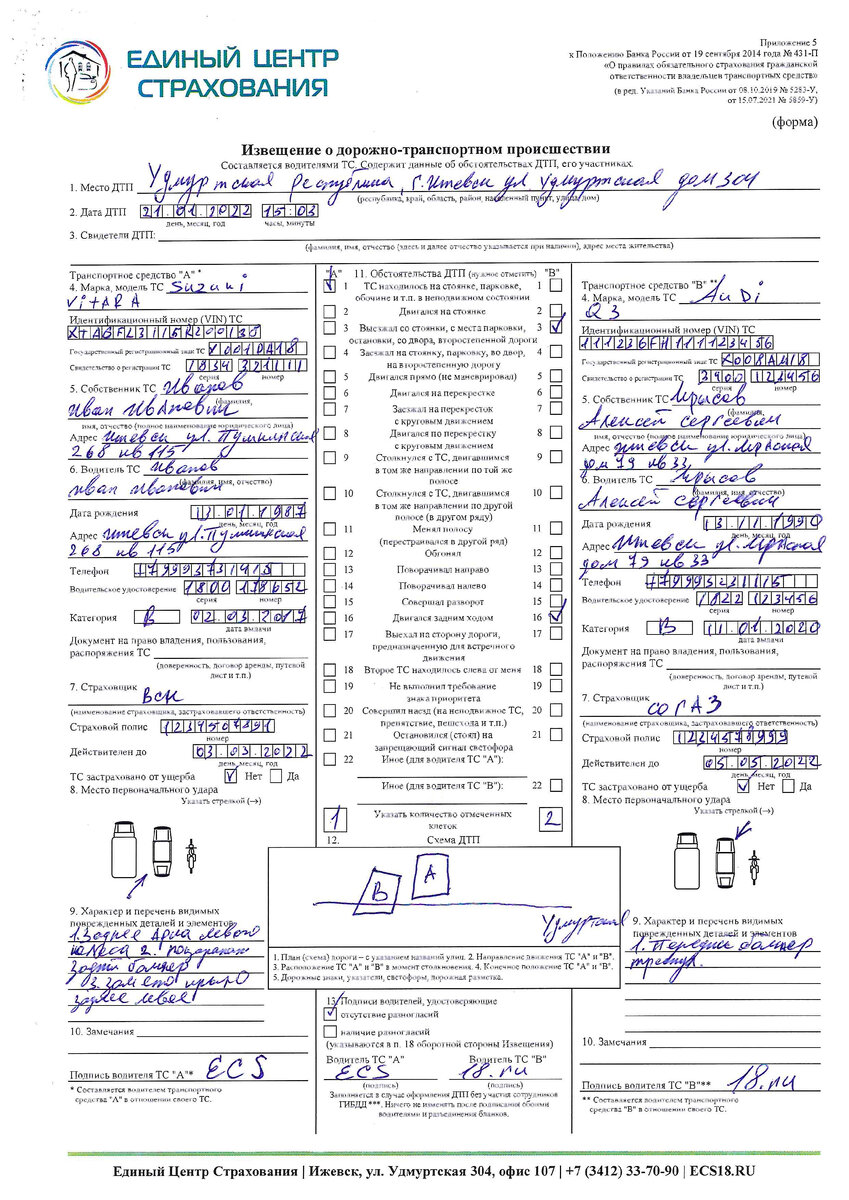 ЕДИНЫЙ ЦЕНТР
СТРАХОВАНИЯ
Приложение 5
к Положению Банка России от 19 сентября 2014 года № 431-П
«О правилах обязательного страхования гражданской
ответственности владельцев транспортных средств»
(в ред. Указаний Банка России от 08.10.2019 № 5283-У,
от 15.07.2021 № 5859-У)
(форма)
Извещение о дорожно-транспортном происшествии
Составляется водителями ТС. Содержит данные об обстоятельствах ДТП, его участниках.
1. Место ДТП Удмуртская республика, г. Ижевск ул Удмуртская дом 304
(республика, край, область, район, населенный пункт, улица, дом)
2. Дата ДТП 21.01.2022 15:03
день, месяц, год часы, минуты
3. Свидетели ДТП:
(фамилия, имя, отчество (здесь и далее отчество указывается при наличии), адрес места жительства)
Транспортное средство "А" *
4. Марка, модель ТС Suzuki
ViTARA
Идентификационный номер (VIN) ТС
Государственный регистрационный знак ТС У001ОА18
Свидетельство о регистрации ТС 7834 321111
серия номер
5. Собственник ТС Иванов
(фамилия,
Иван Иванович
имя, отчество (полное наименование юридического лица)
Адрес Ижевск ул. Пушкинская
268 кв 115
6. Водитель ТС Иванов
Иван Иванович
(фамилия, имя, отчество)
Дата рождения 13.01.1987
день, месяц, год
Адрес Ижевск ул. Пушкинская
268 кв 115
Телефон +79993731918
Водительское удостоверение 1800 178652
серия номер
Категория В 02.03.2017
дата выдачи
Документ на право владения, пользования,
распоряжения ТС
(доверенность, договор аренды, путевой
лист и т.п.)
7. Страховщик ВСК
(наименование страховщика, застраховавшего ответственность)
Страховой полис 1234507891
номер
Действителен до 03.03.2022
день, месяц, год
ТС застраховано от ущерба Нет Да
8. Место первоначального удара
Указать стрелкой (→)
9. Характер и перечень видимых
поврежденных деталей и элементов
1. Заднее Арка левого
колеса 2. поцарапан
Задний бампер
3. Замято крыло
заднее левое
10. Замечания
Подпись водителя ТС "А"* ECS
* Составляется водителем транспортного
средства "А" в отношении своего ТС.
"А" 11. Обстоятельства ДТП (нужное отметить) "В"
1 ТС находилось на стоянке, парковке, 1
обочине и т.п. в неподвижном состоянии
2 Двигался на стоянке 2
3 Выезжал со стоянки, с места парковки, 3
остановки, со двора, второстепенной дороги
4 Заезжал на стоянку, парковку, во двор, 4
на второстепенную дорогу
5 Двигался прямо (не маневрировал) 5
6 Двигался на перекрестке 6
7 Заезжал на перекресток 7
с круговым движением
8 Двигался по перекрестку 8
с круговым движением
9 Столкнулся с ТС, двигавшимся 9
в том же направлении по той же
полосе
10 Столкнулся с ТС, двигавшимся 10
в том же направлении по другой
полосе (в другом ряду)
11 Менял полосу 11
(перестраивался в другой ряд)
12 Обгонял 12
13 Поворачивал направо 13
14 Поворачивал налево 14
15 Совершал разворот 15
16 Двигался задним ходом 16
17 Выехал на сторону дороги, 17
предназначенную для встречного
движения
18 Второе ТС находилось слева от меня 18
19 Не выполнил требование 19
знака приоритета
20 Совершил наезд (на неподвижное ТС, 20
препятствие, пешехода и т.п.)
21 Остановился (стоял) на 21
запрещающий сигнал светофора
22 Иное (для водителя ТС "А"):
Иное (для водителя ТС "В"): 22
1 Указать количество отмеченных 2
клеток
12. Схема ДТП
В А
Удмуртская
1. План (схема) дороги – с указанием названий улиц. 2. Направление движения ТС "А" и "В".
3. Расположение ТС "А" и "В" в момент столкновения. 4. Конечное положение ТС "А" и "В".
5. Дорожные знаки, указатели, светофоры, дорожная разметка.
13. Подписи водителей, удостоверяющие
отсутствие разногласий
наличие разногласий
(указываются в п. 18 оборотной стороны Извещения)
Водитель ТС "А" Водитель ТС "В"
ECS 18.ru
(подпись) (подпись)
Заполняется в случае оформления ДТП без участия сотрудников
ГИБДД ***. Ничего не изменять после подписания обоими
водителями и разъединения бланков.
Транспортное средство "В" **
4. Марка, модель ТС AuDi
Q3
Идентификационный номер (VIN) ТС
Государственный регистрационный знак ТС Х008АМ18
Свидетельство о регистрации ТС 2900 123456
серия номер
5. Собственник ТС
(фамилия,
Алексей Сергеевич
имя, отчество (полное наименование юридического лица)
Адрес Ижевск ул.
дом 79 кв 33
6. Водитель ТС
Алексей Сергеевич
(фамилия, имя, отчество)
Дата рождения 13.11.1990
день, месяц, год
Адрес Ижевск ул.
дом 79 кв 33
Телефон +79993231115
Водительское удостоверение 1122 123456
серия номер
Категория В 11.01.2020
дата выдачи
Документ на право владения, пользования,
распоряжения ТС
(доверенность, договор аренды, путевой
лист и т.п.)
7. Страховщик СОГАЗ
(наименование страховщика, застраховавшего ответственность)
Страховой полис 1234578999
номер
Действителен до 05.05.2022
день, месяц, год
ТС застраховано от ущерба Нет Да
8. Место первоначального удара
Указать стрелкой (→)
9. Характер и перечень видимых
поврежденных деталей и элементов
1. Передний бампер
треснул.
10. Замечания
Подпись водителя ТС "В"** 18.ru
** Составляется водителем транспортного
средства "В" в отношении своего ТС.
Единый Центр Страхования | Ижевск, ул. Удмуртская 304, офис 107 | +7 (3412) 33-70-90 | ECS18.RU